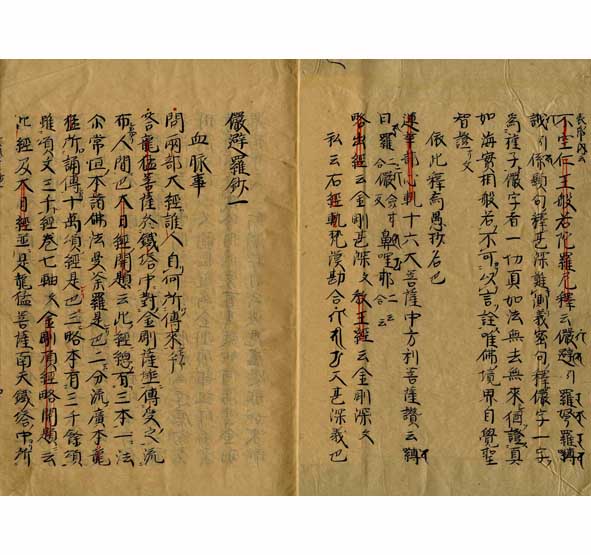 不空仁王般若陀羅尼釋云儼避引羅弩羅
誐引係顯句釋甚深難測義密句釋儼字一字
為種子儼字者一切真如法無去無來猶證真
如海實相般若不可以言詮唯佛境界自覺聖
智證文
依此釋為愚抄名也
蓮華部心軌十六大菩薩中方利菩薩讚云
曰羅二合儼文
略出經云金剛甚深文教王經云金剛深文
私云右經軌梵漢勘合甚深義也
儼避羅鈔一
血脉事
問兩部大經誰人自何所傳來乎
答龍猛菩薩於鐵塔中對金剛薩埵傳受之流
布人間也大日經開題云此經總有三本一法
尓常恒本諸佛法曼荼羅是也二分流廣本龍
猛所誦傳十萬頌經是也三略本有三千餘頌
雖頌文三千經卷七軸文金剛頂經略開題云
此經及大日經並是龍猛菩薩南天鐵塔中所